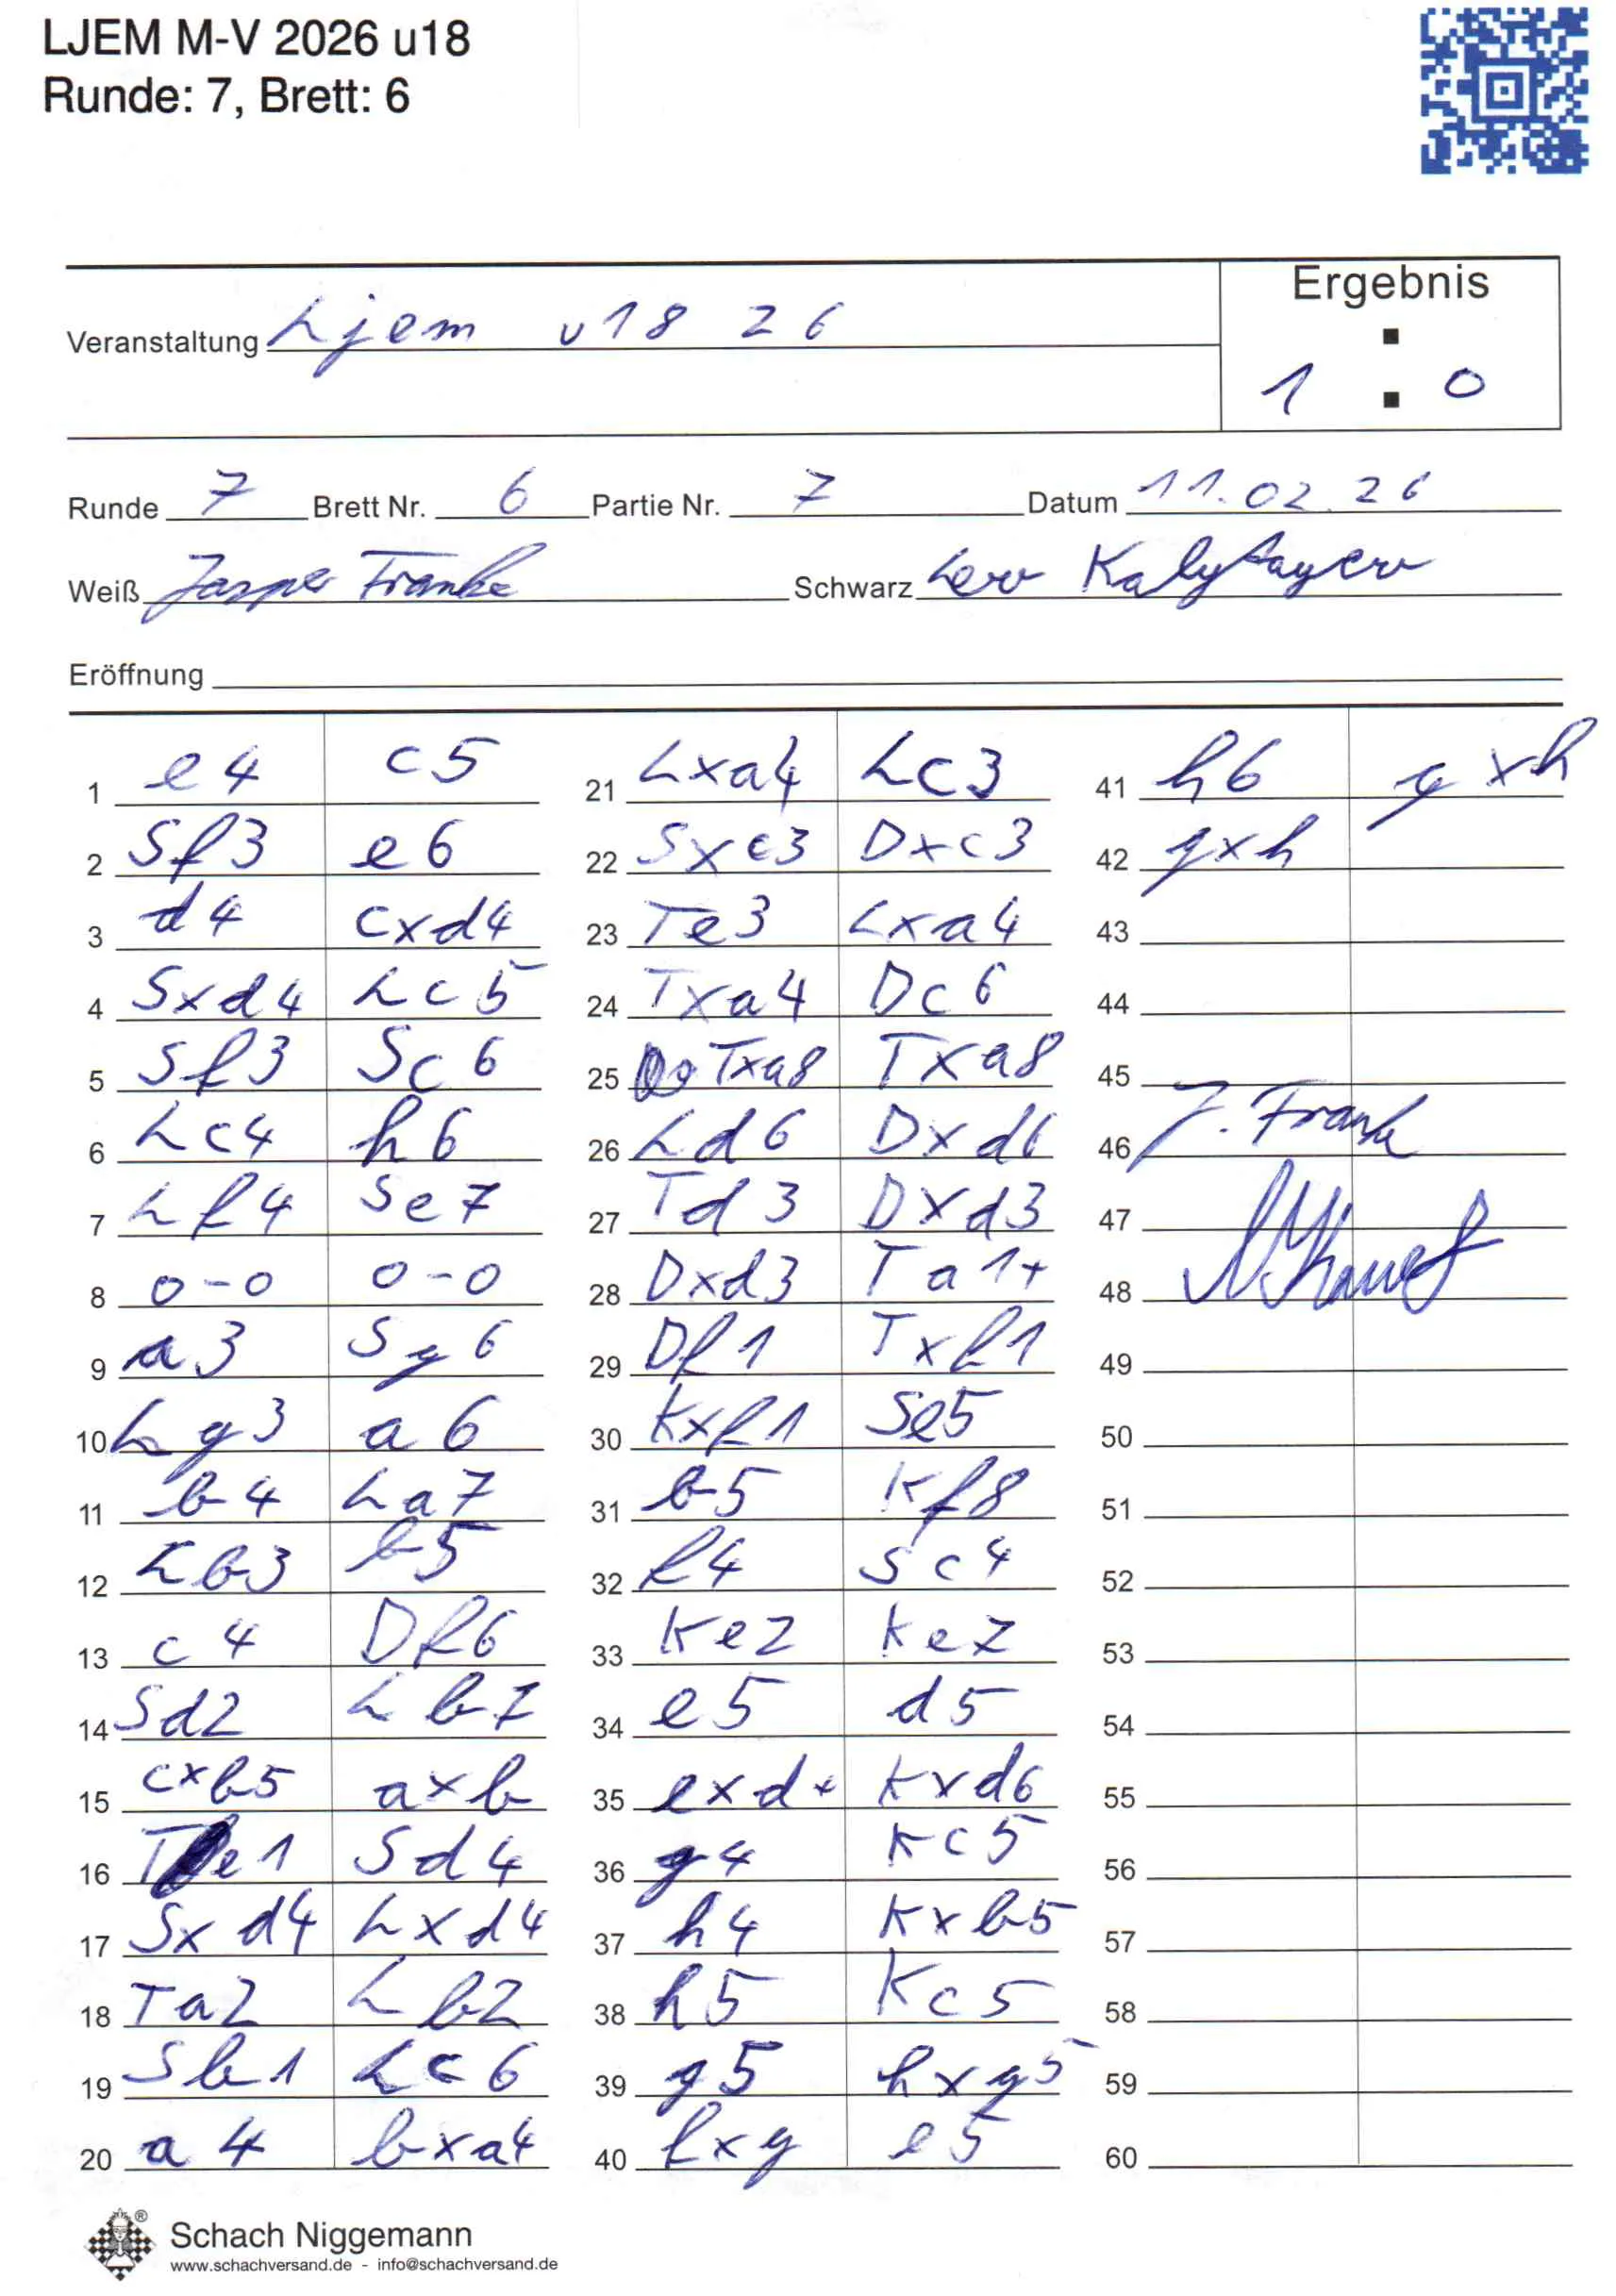 LJEM M-V 2026 u18
Runde: 7, Brett: 6
Ergebnis
Veranstaltung Ljem u18 26
1 : 0
Runde 7 Brett Nr. 6 Partie Nr. 7 Datum 11.02.26
Weiß Jasper Franke Schwarz Lev
Eröffnung
1 e4 c5 21 Lxa4 Lc3 41 h6 gxh
2 Sf3 e6 22 Sxc3 Dxc3 42 gxh
3 d4 cxd4 23 Te3 Lxa4 43
4 Sxd4 Lc5 24 Txa4 Dc6 44
5 Sf3 Sc6 25 Txa8 Txa8 45
6 Lc4 h6 26 Ld6 Dxd6 46 J. Frank
7 Lf4 Se7 27 Td3 Dxd3 47
8 0-0 0-0 28 Dxd3 Ta1+ 48
9 a3 Sg6 29 Df1 Txf1 49
10 Lg3 a6 30 Kxf1 Se5 50
11 b4 La7 31 b5 Kf8 51
12 Lb3 b5 32 f4 Sc4 52
13 c4 Df6 33 Ke2 Ke7 53
14 Sd2 Lb7 34 e5 d5 54
15 cxb5 axb 35 exd+ Kxd6 55
16 Te1 Sd4 36 g4 Kc5 56
17 Sxd4 Lxd4 37 h4 Kxb5 57
18 Ta2 Lb2 38 h5 Kc5 58
19 Sb1 Lc6 39 g5 hxg5 59
20 a4 bxa4 40 fxg e5 60
Schach Niggemann
www.schachversand.de - info@schachversand.de